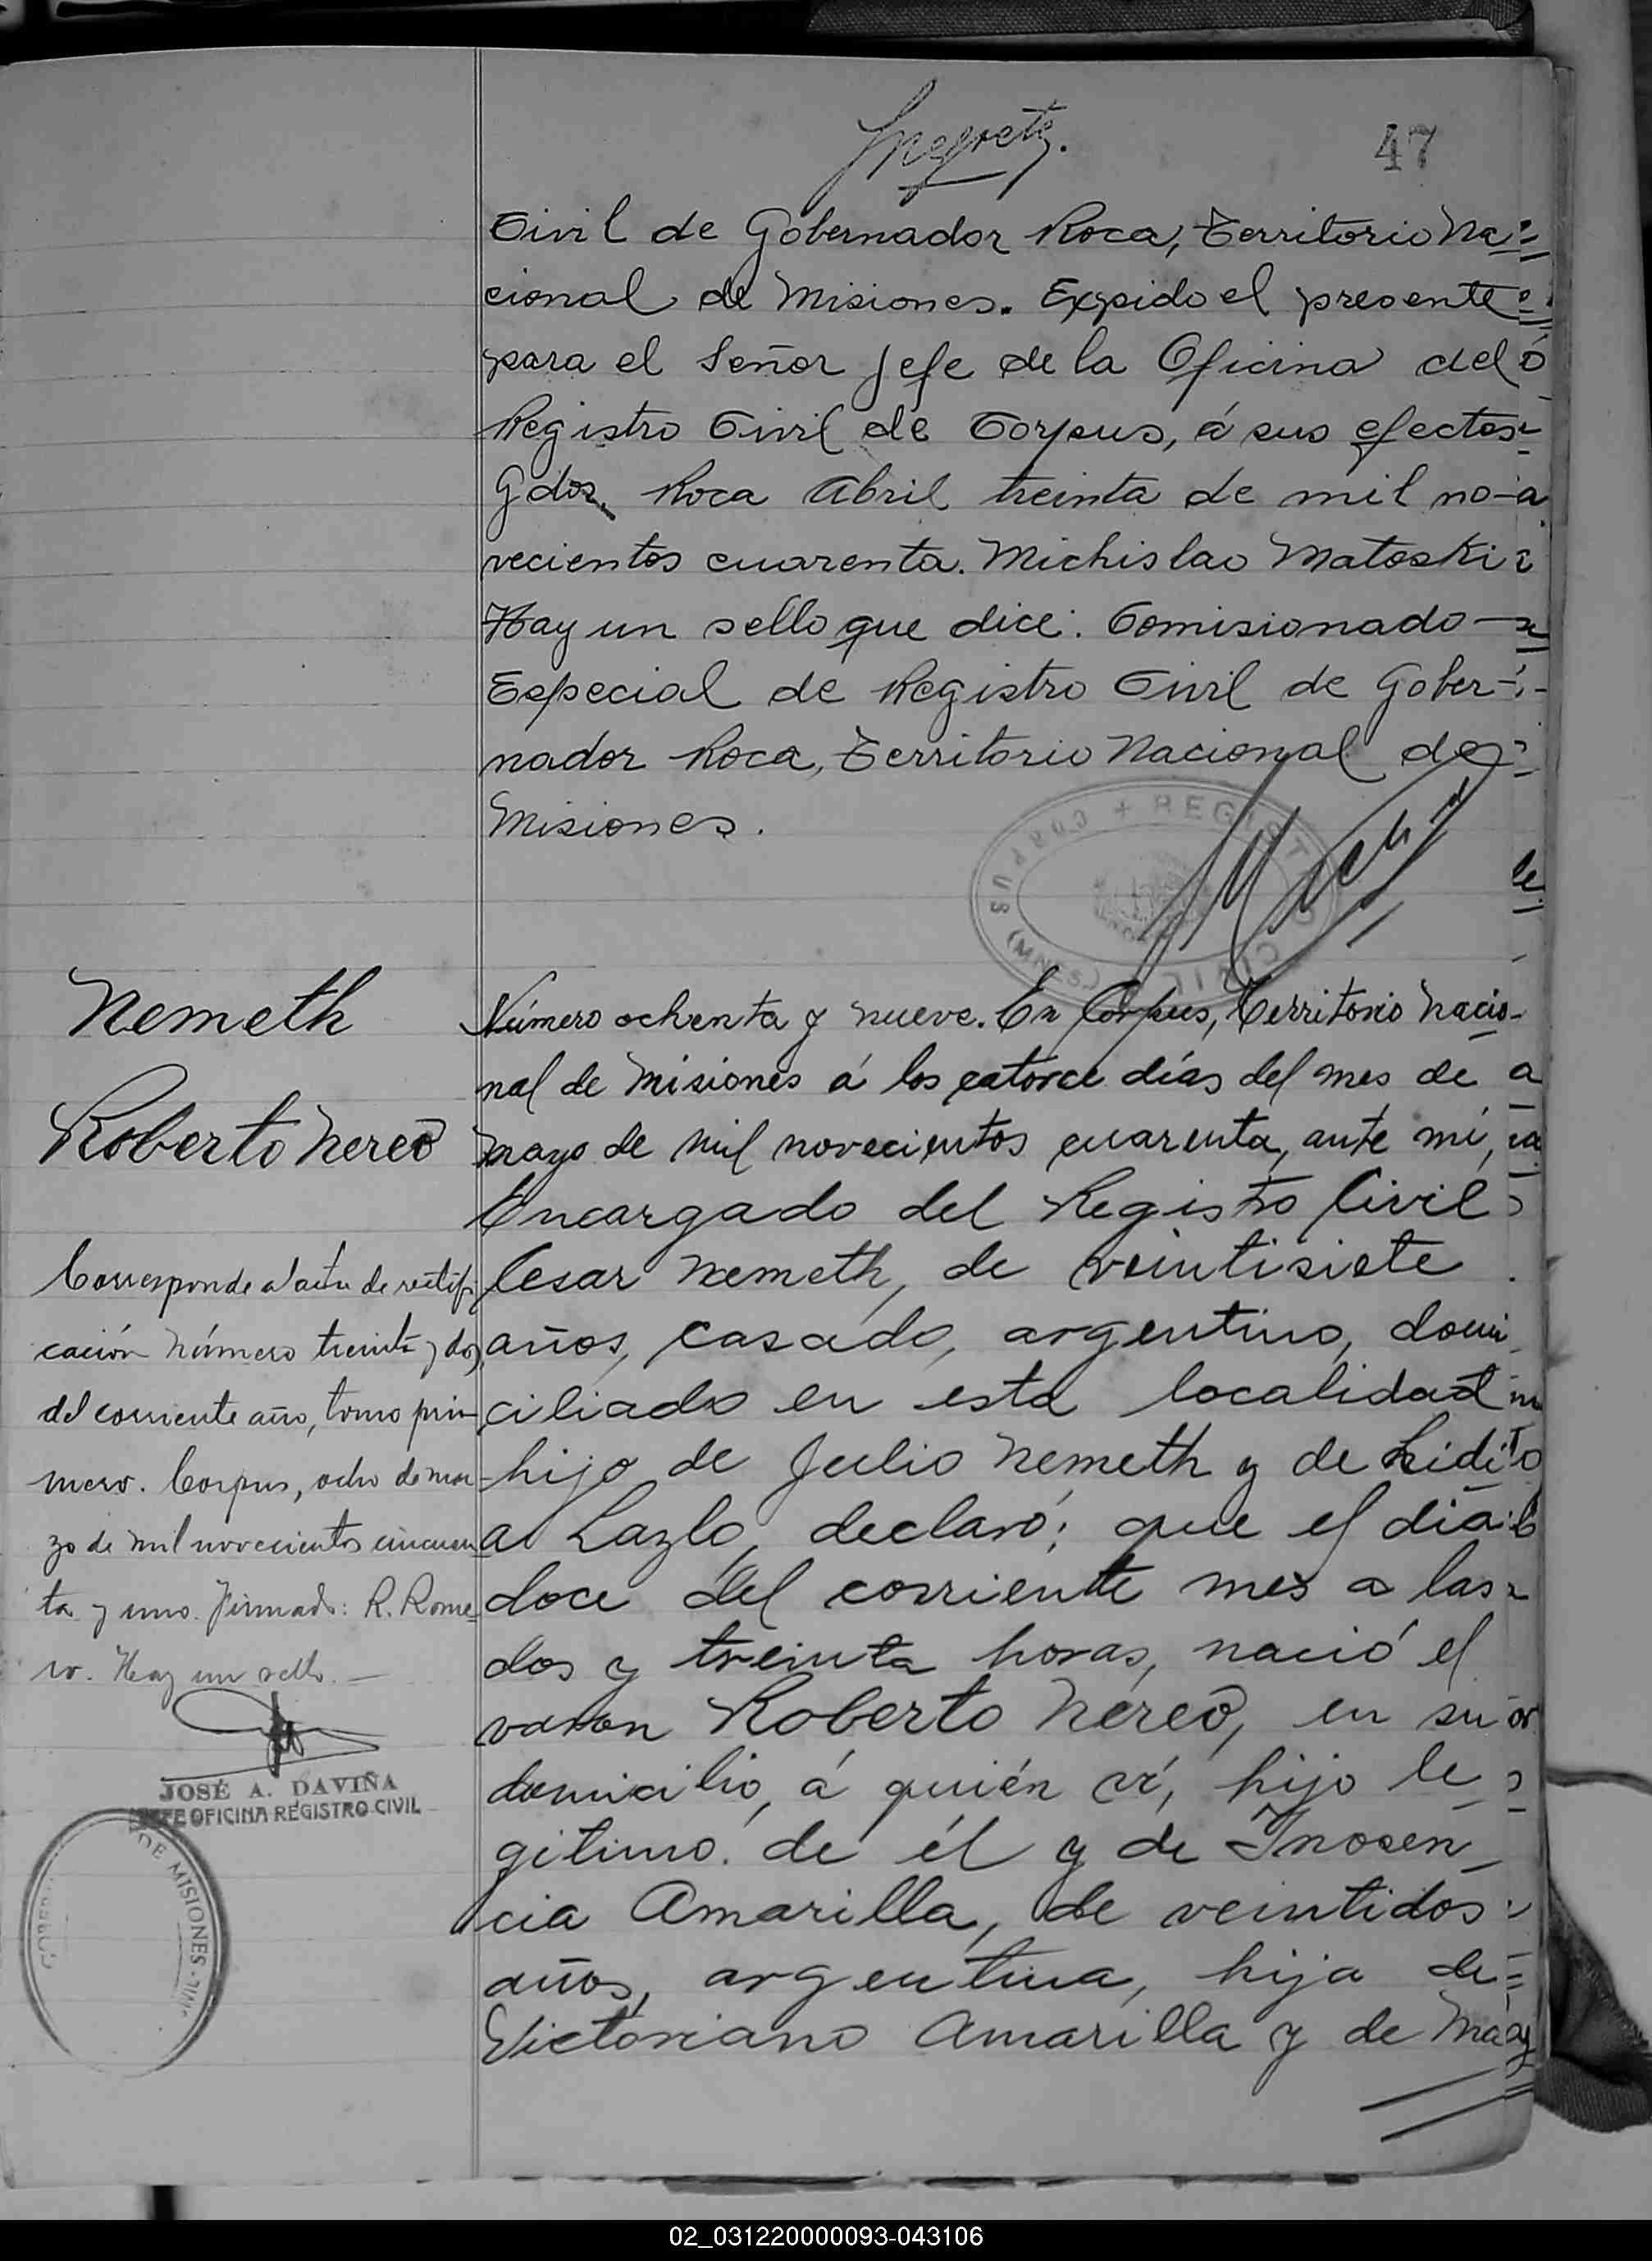 47
Civil de Gobernador Roca, Territorio Na=
cional de Misiones. Expido el presente
para el Señor Jefe de la Oficina del
Registro Civil de Corpus, á sus efectos-
Gdor. Roca Abril treinta de mil no-
vecientos cuarenta. Michislao Matoski
Hay un sello que dice: Comisionado
Especial de Registro Civil de Gober-
nador Roca, Territorio Nacional de
Misiones.
CORPUS + REGISTRO CIVIL (MNES)
Nemeth
Roberto Nereo
Número ochenta y nueve. En Corpus, Territorio Nacio-
nal de Misiones á los catorce días del mes de
mayo de mil novecientos cuarenta, ante mí,
Encargado del Registro Civil
Cesar Nemeth, de veintisiete
años, casado, argentino, domi
ciliado en esta localidad
hijo de Julio Nemeth y de Lidi
a Lazlo, declaró: que el día
doce del corriente mes a las
dos y treinta horas, nació el
varon Roberto Néreo, en su
domicilio, á quién ví, hijo le
gitimo de él y de Inosen
cia Amarilla, de veintidos
años, argentina, hija de
Victoriano Amarilla y de Ma
Corresponde al acta de rectifi
cación número treinta y dos
del corriente año, tomo pri-
mero. Corpus, ocho de mar-
zo de mil novecientos cincuen
ta y uno. Firmado: R. Rome
ro. Hay un sello.—
JOSÉ A. DAVIÑA
JEFE OFICINA REGISTRO CIVIL
DE MISIONES
02_031220000093-043106